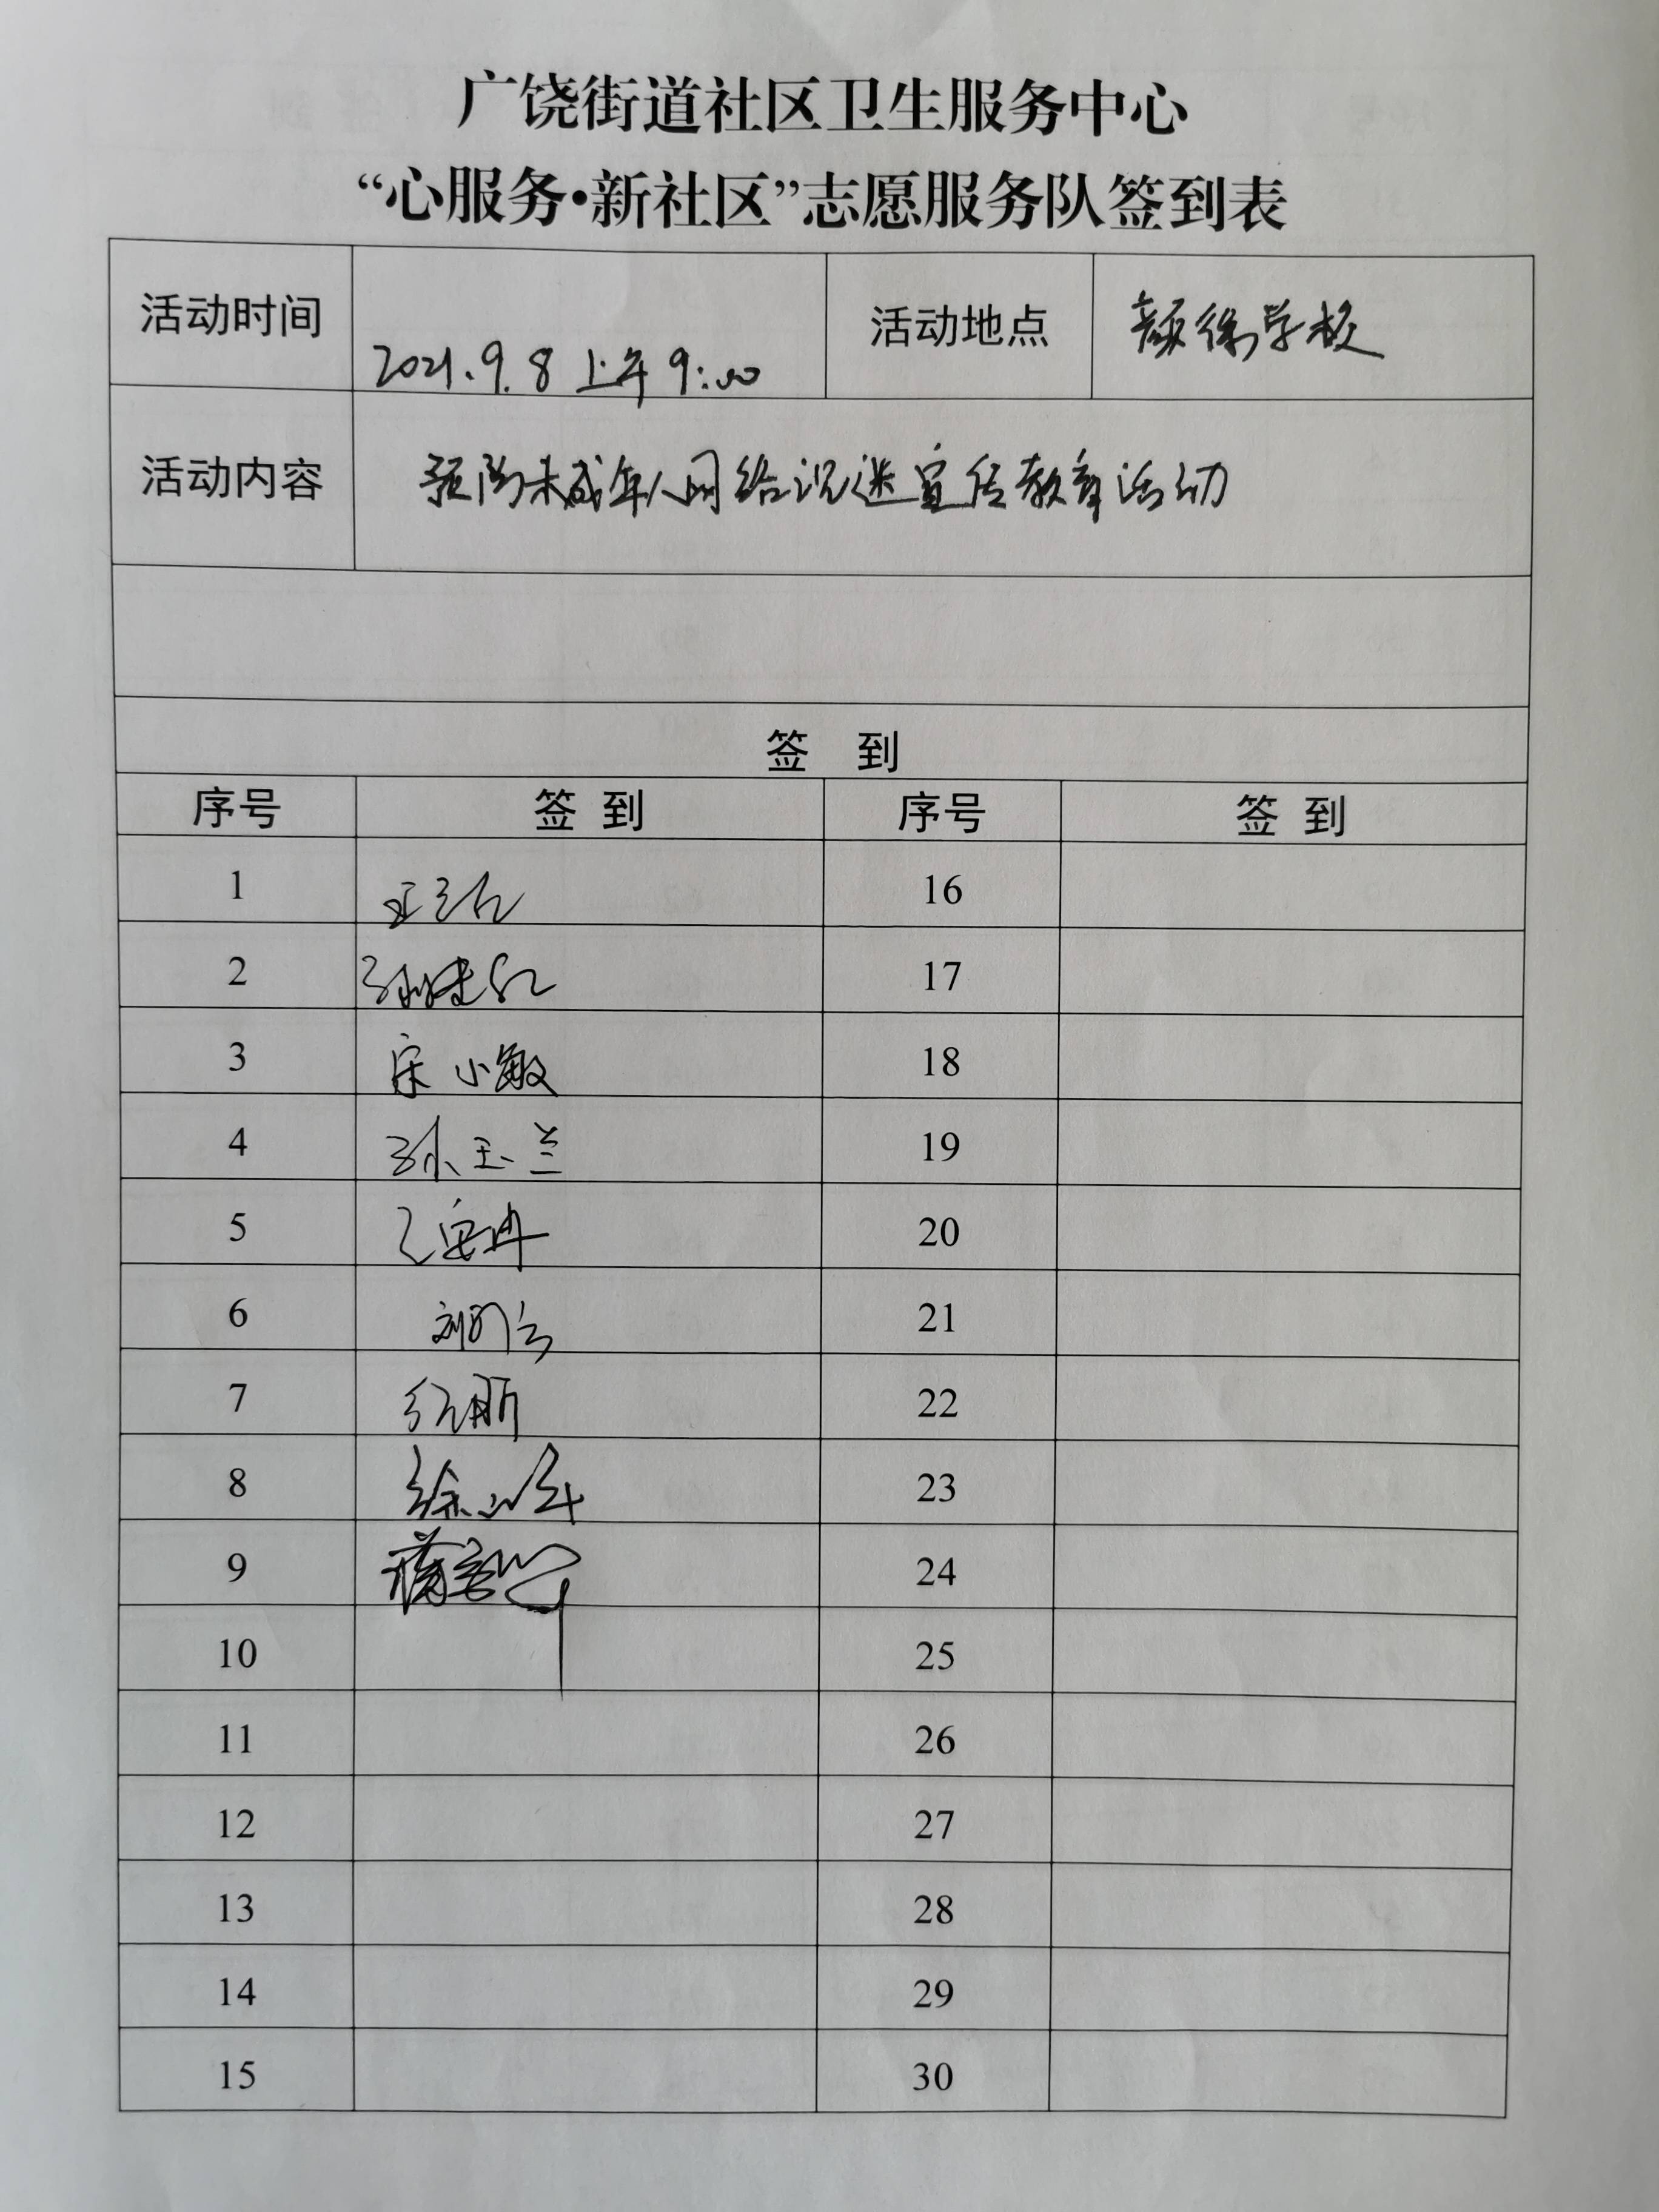 广饶街道社区卫生服务中心
“心服务•新社区”志愿服务队签到表
活动时间 2021.9.8 上午 9:00 活动地点 颜徐学校
活动内容 预防未成年人网络沉迷宣传教育活动
签 到
序号 签到 序号 签到
1 16
2 17
3 宋小敏 18
4 孙玉兰 19
5 20
6 21
7 22
8 23
9 24
10 25
11 26
12 27
13 28
14 29
15 30